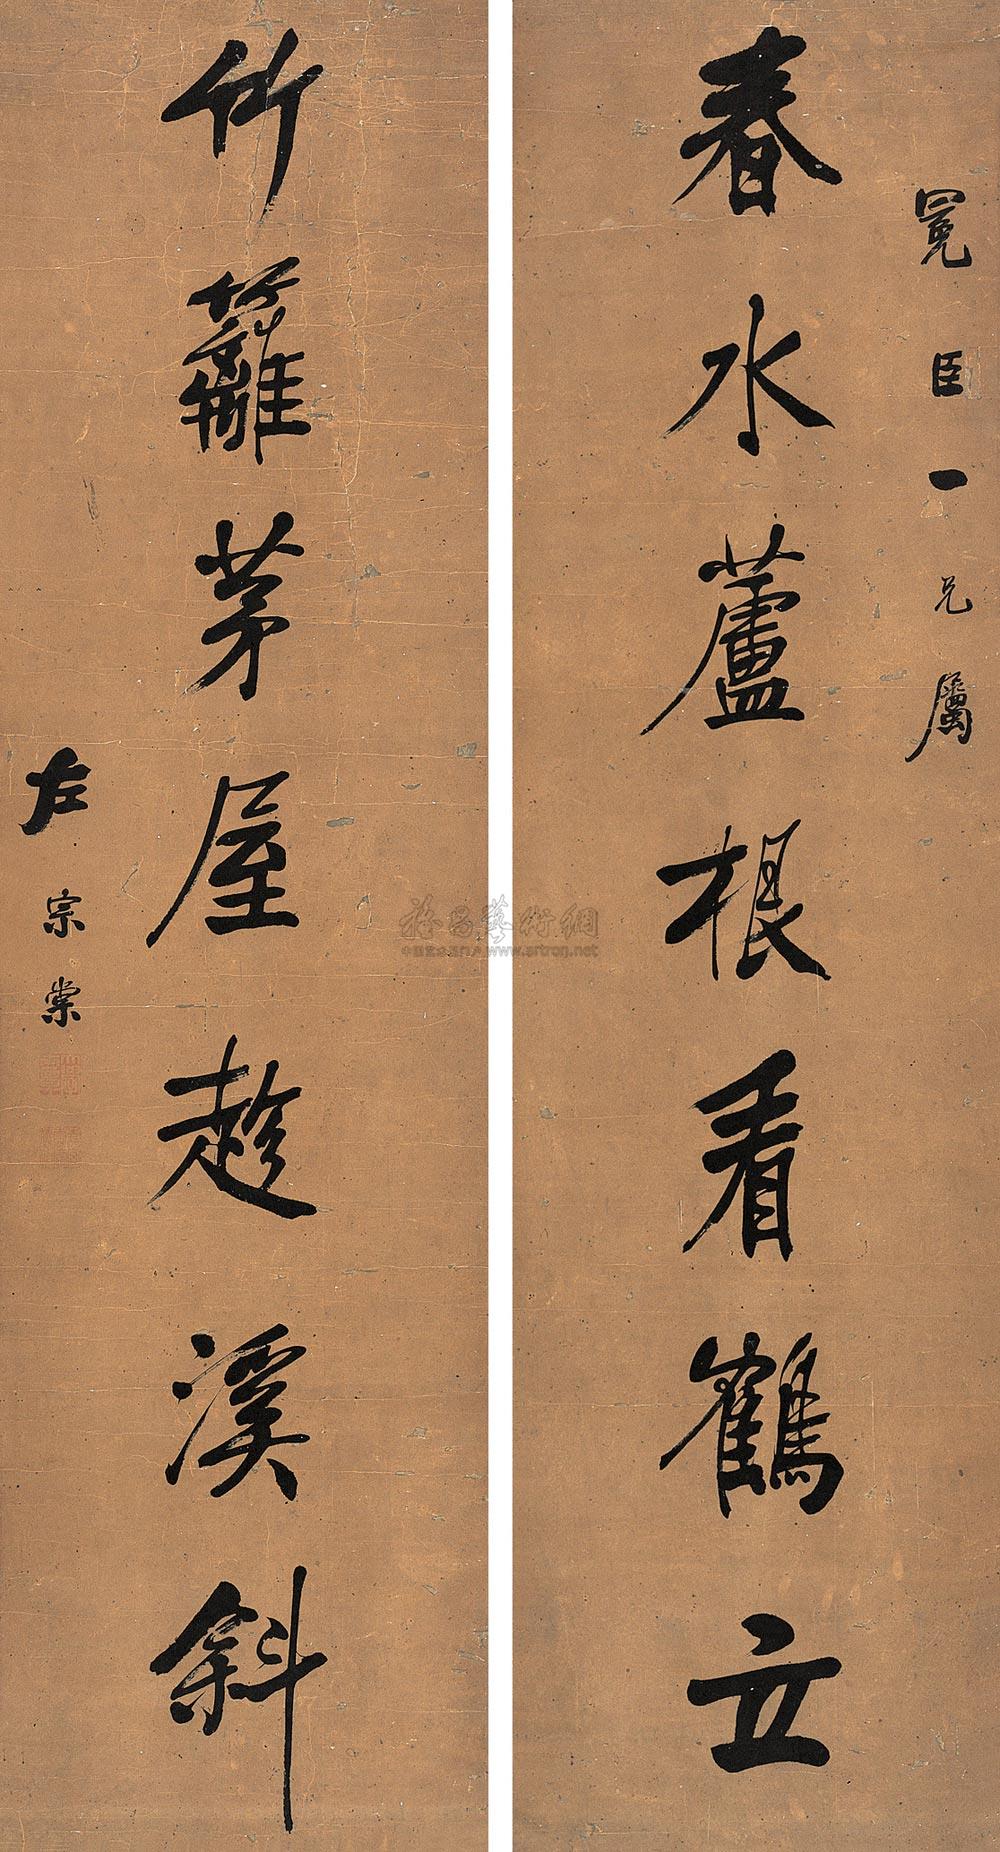 冕臣一兄屬
春水蘆根看鶴立
竹籬茅屋趁溪斜
左宗棠
雅昌藝術網
www.artron.net